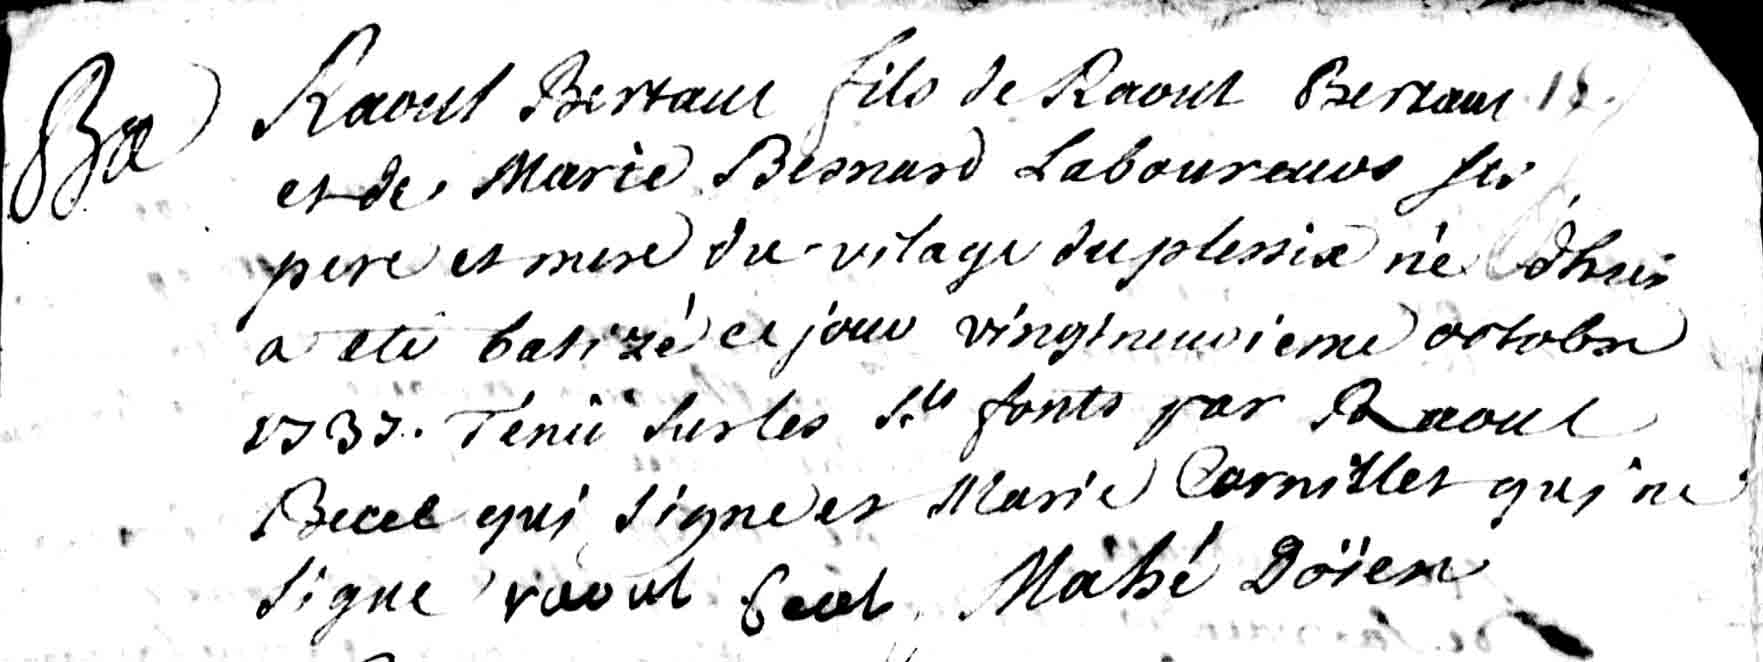 Ba Raoul Bertaut fils de Raoul Bertaut
et de Marie Besnard Laboureurs ses
pere et mere du vilage du plessix né d'hier
a eté batizé ce jour vingtneuvieme octobre
1737. Tenü sur les Sts fonts par Raoul
Becel qui signe et Marie Cornillet qui ne
signe raoul becel Mahé Döïen